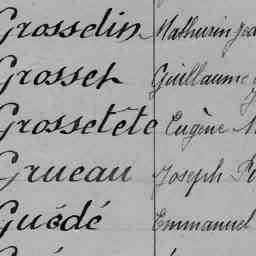 Grosselin Mathurin
Grosset Guillaume
Grossetête Eugène
Grueau Joseph
Guédé Emmanuel